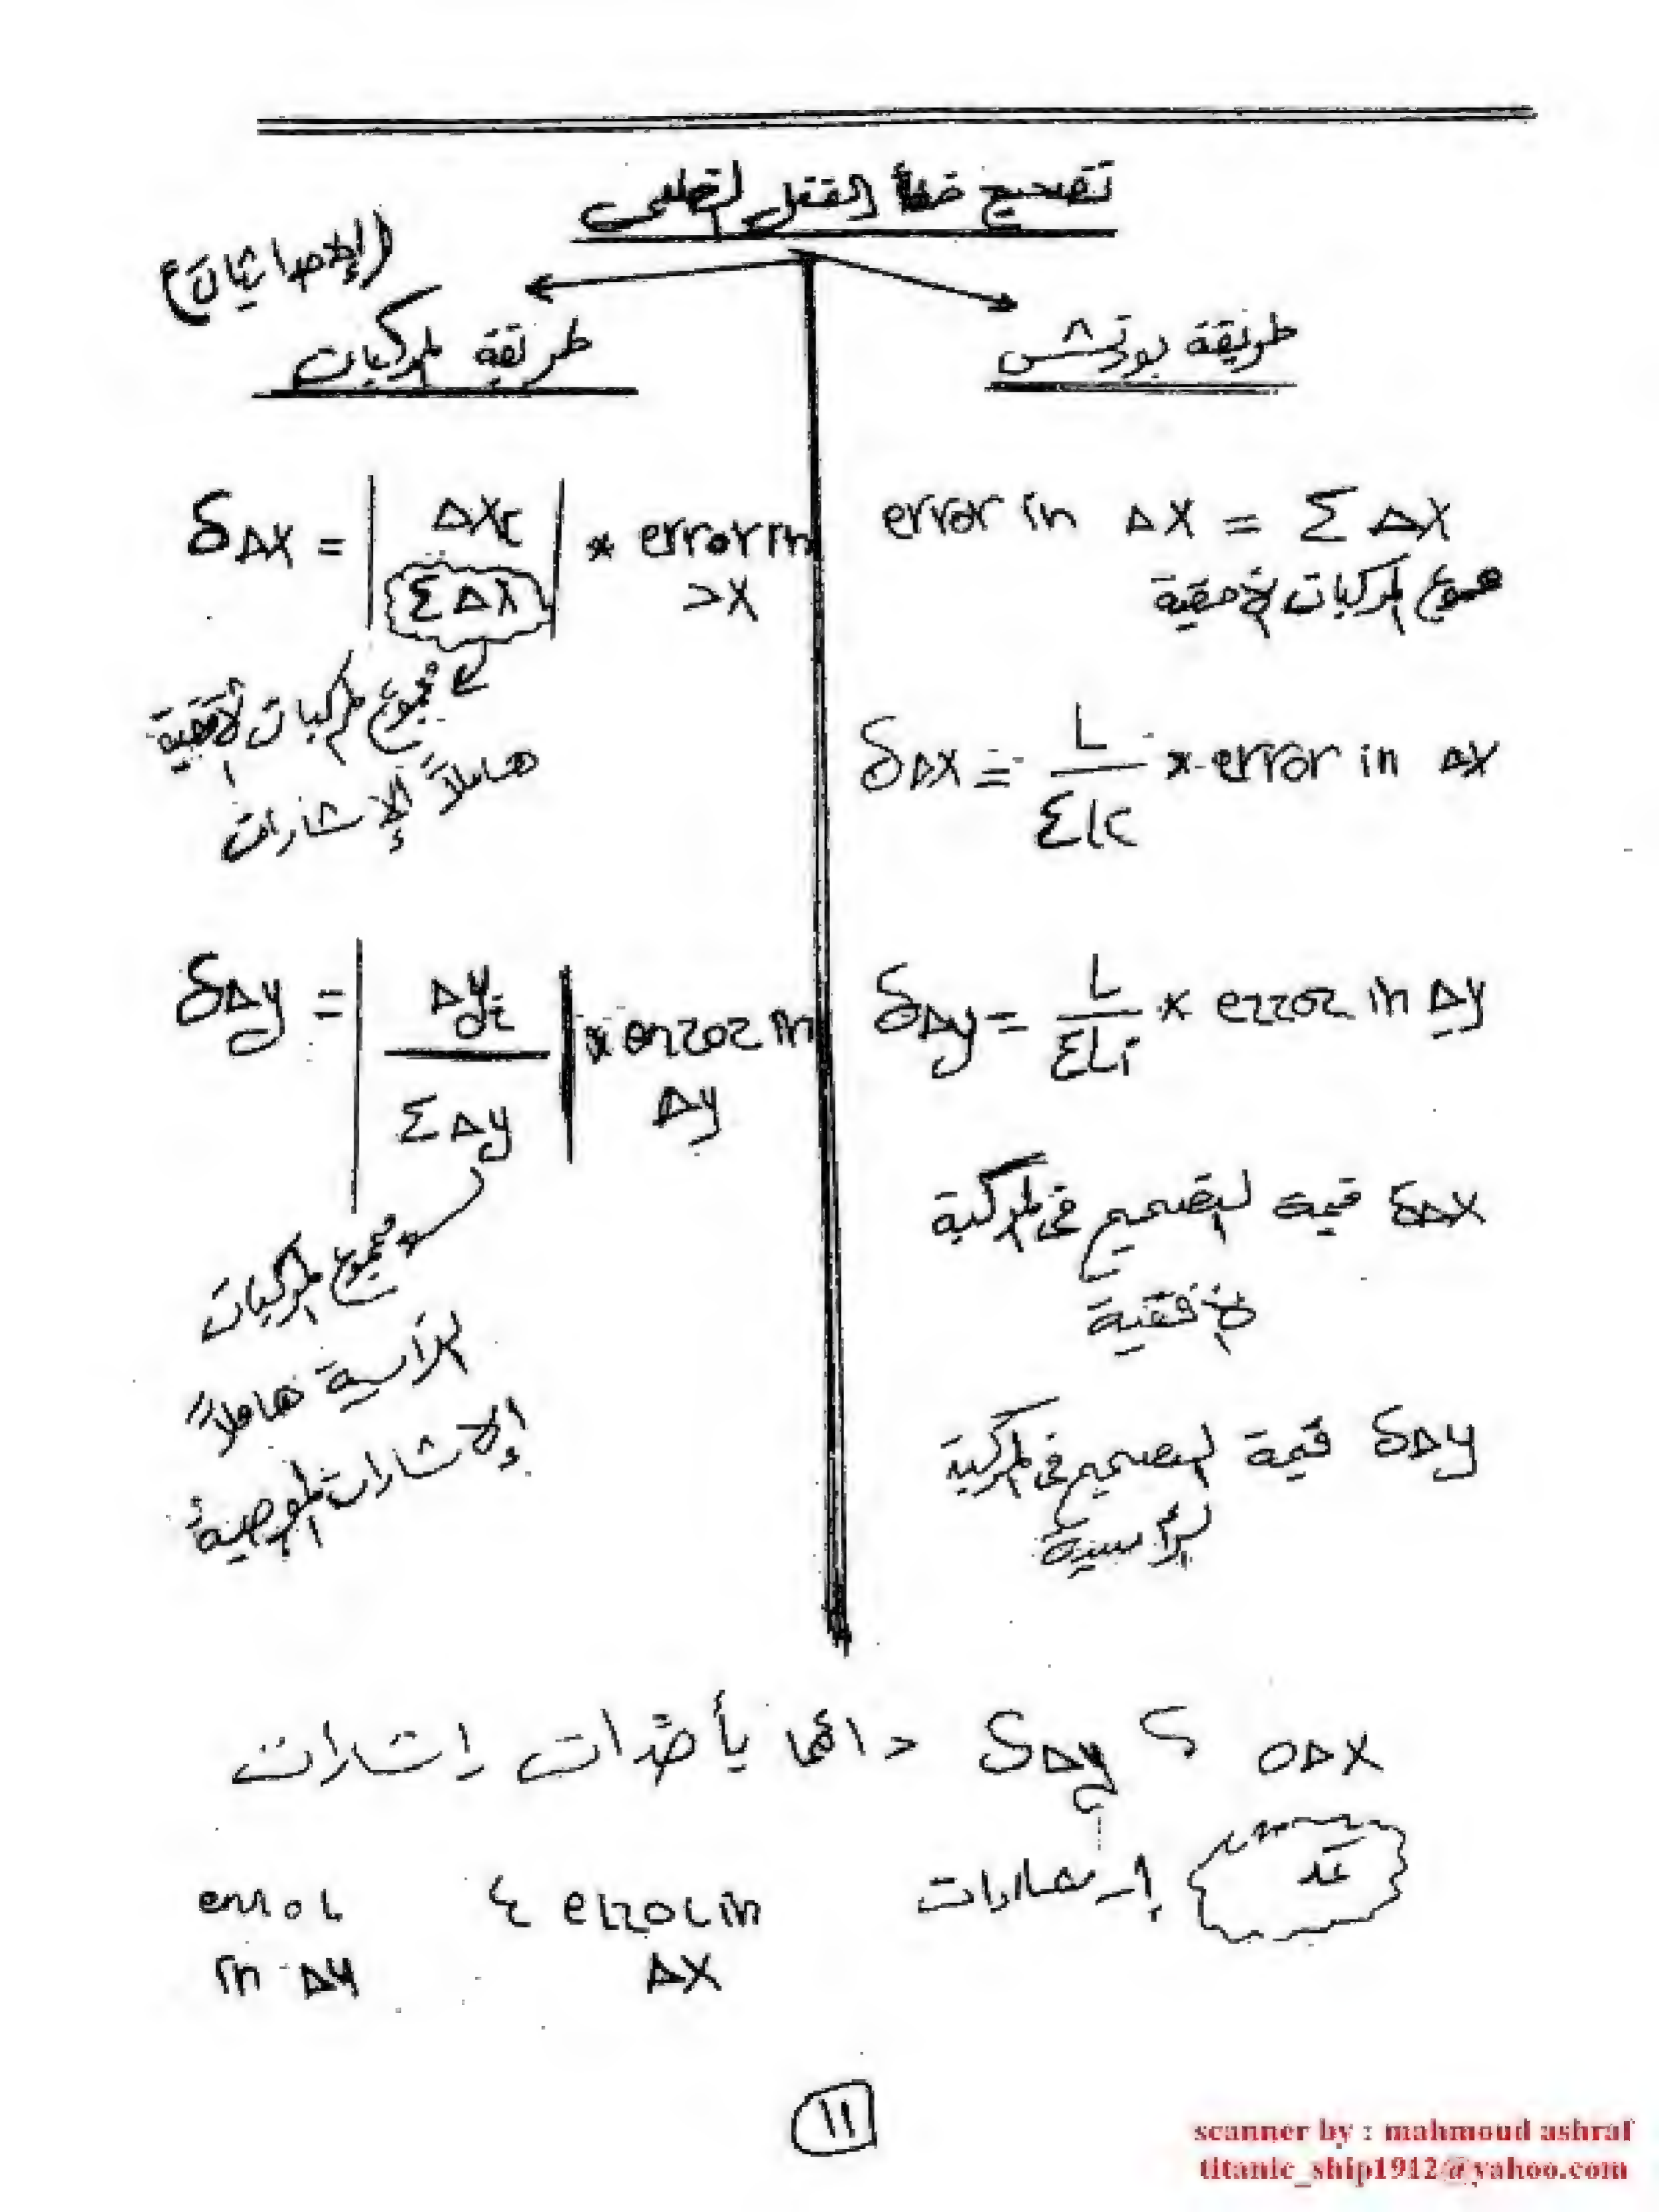 تصحيح خطأ القفل الضلعى
طريقة بودتش
error in ΔX = Σ ΔX
مجموع المركبات الأفقية
δΔX = L / ΣLi * error in ΔX
δΔy = L / ΣLi * error in Δy
δΔX قيمة التصحيح فى المركبة
الأفقية
δΔy قيمة التصحيح فى المركبة
الرأسية
طريقة المركبات
(الإحداثيات)
δΔX = | ΔXi / ΣΔX | * error in ΔX
مجموع المركبات الأفقية
هاملاً الإشارات
δΔy = | Δyi / ΣΔy | * error in Δy
مجموع المركبات
الرأسية هاملاً
الإشارات الموضحة
δΔX و δΔy دائما يأخذان إشارات
عكس إشارات error in ΔX و error in Δy
١١
scanner by : mahmoud ashraf
titanic_ship1912@yahoo.com